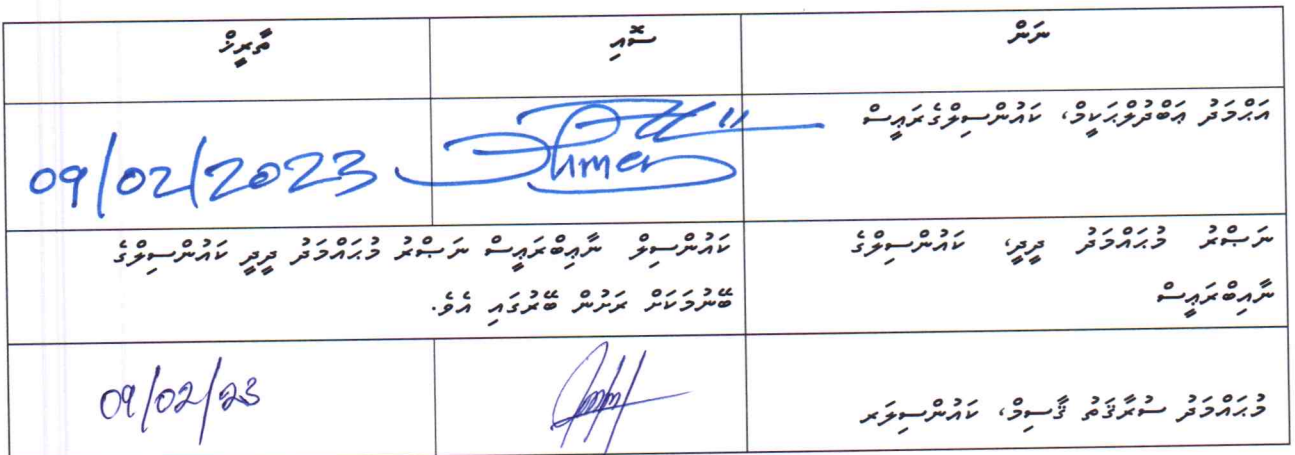 ނަން ސޮއި ތާރީޚް
އަޙްމަދު ޢަބްދުލްޙަކީމް، ކައުންސިލްގެރައީސް 09/02/2023
ނަޞްރު މުޙައްމަދު ދީދީ، ކައުންސިލްގެ ކައުންސިލް ނާއިބްރައީސް ނަޞްރު މުޙައްމަދު ދީދީ ކައުންސިލްގެ
ނާއިބްރައީސް ބޭނުމަކަށް ރަށުން ބޭރުގައި އެވެ.
މުޙައްމަދު ސުރާޤަތު ޤާސިމް، ކައުންސިލަރ 09/02/23